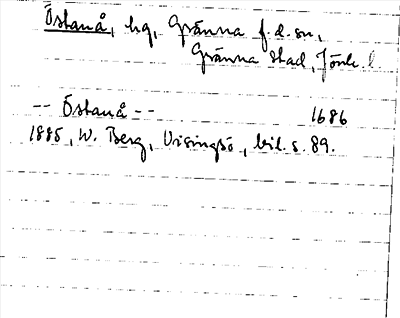 Östanå, hg, Gränna f.d. sn,
Gränna stad, Jönk. l.
-- Östanå -- 1686
1885, W. Berg, Visingsö, bil. s. 89.